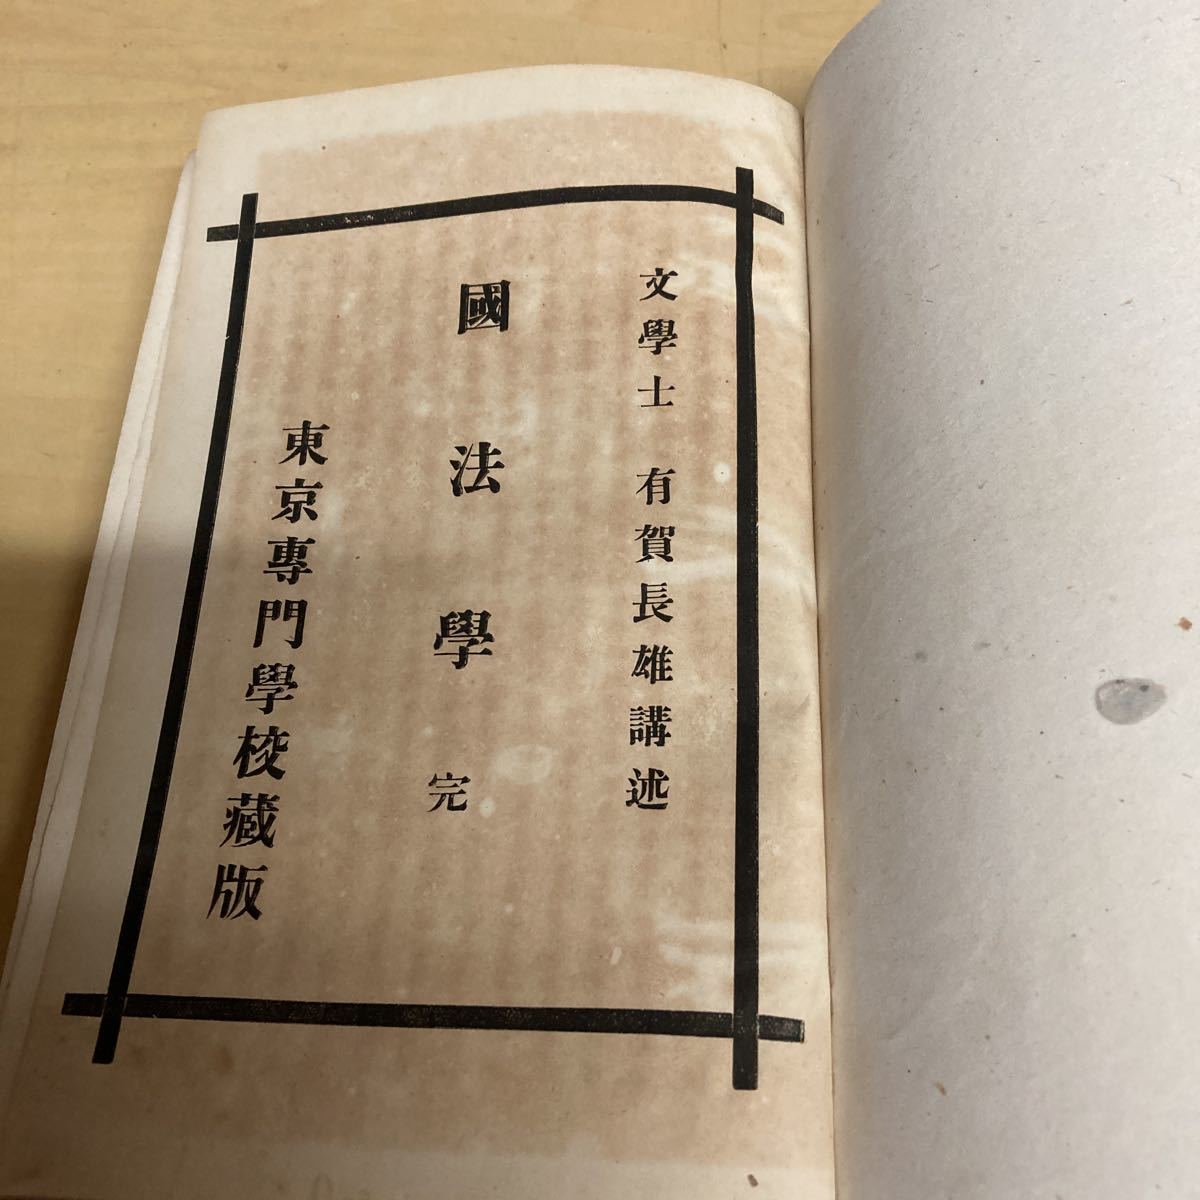 文學士 有賀長雄講述
國法學 完
東京專門學校藏版